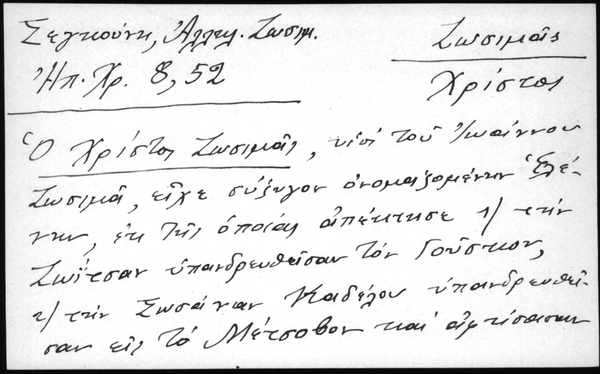 Σεγκούνη, Ἀλληλ. Ζωσιμ.
Ἠπ. Χρ. 8, 52
Ζωσιμᾶς
Χρίστος
Ὁ Χρίστος Ζωσιμᾶς, υἱὸς τοῦ Ἰωάννου
Ζωσιμᾶ, εἶχε σύζυγον ὀνομαζομένην Ἑλέ-
νην, ἐκ τῆς ὁποίας ἀπέκτησε 1) τὴν
Ζωίτσαν ὑπανδρευθεῖσαν τὸν Γούστιον,
2) τὴν Σωσάναν ὑπανδρευθεῖ-
σαν εἰς τὸ Μέτσοβον καὶ